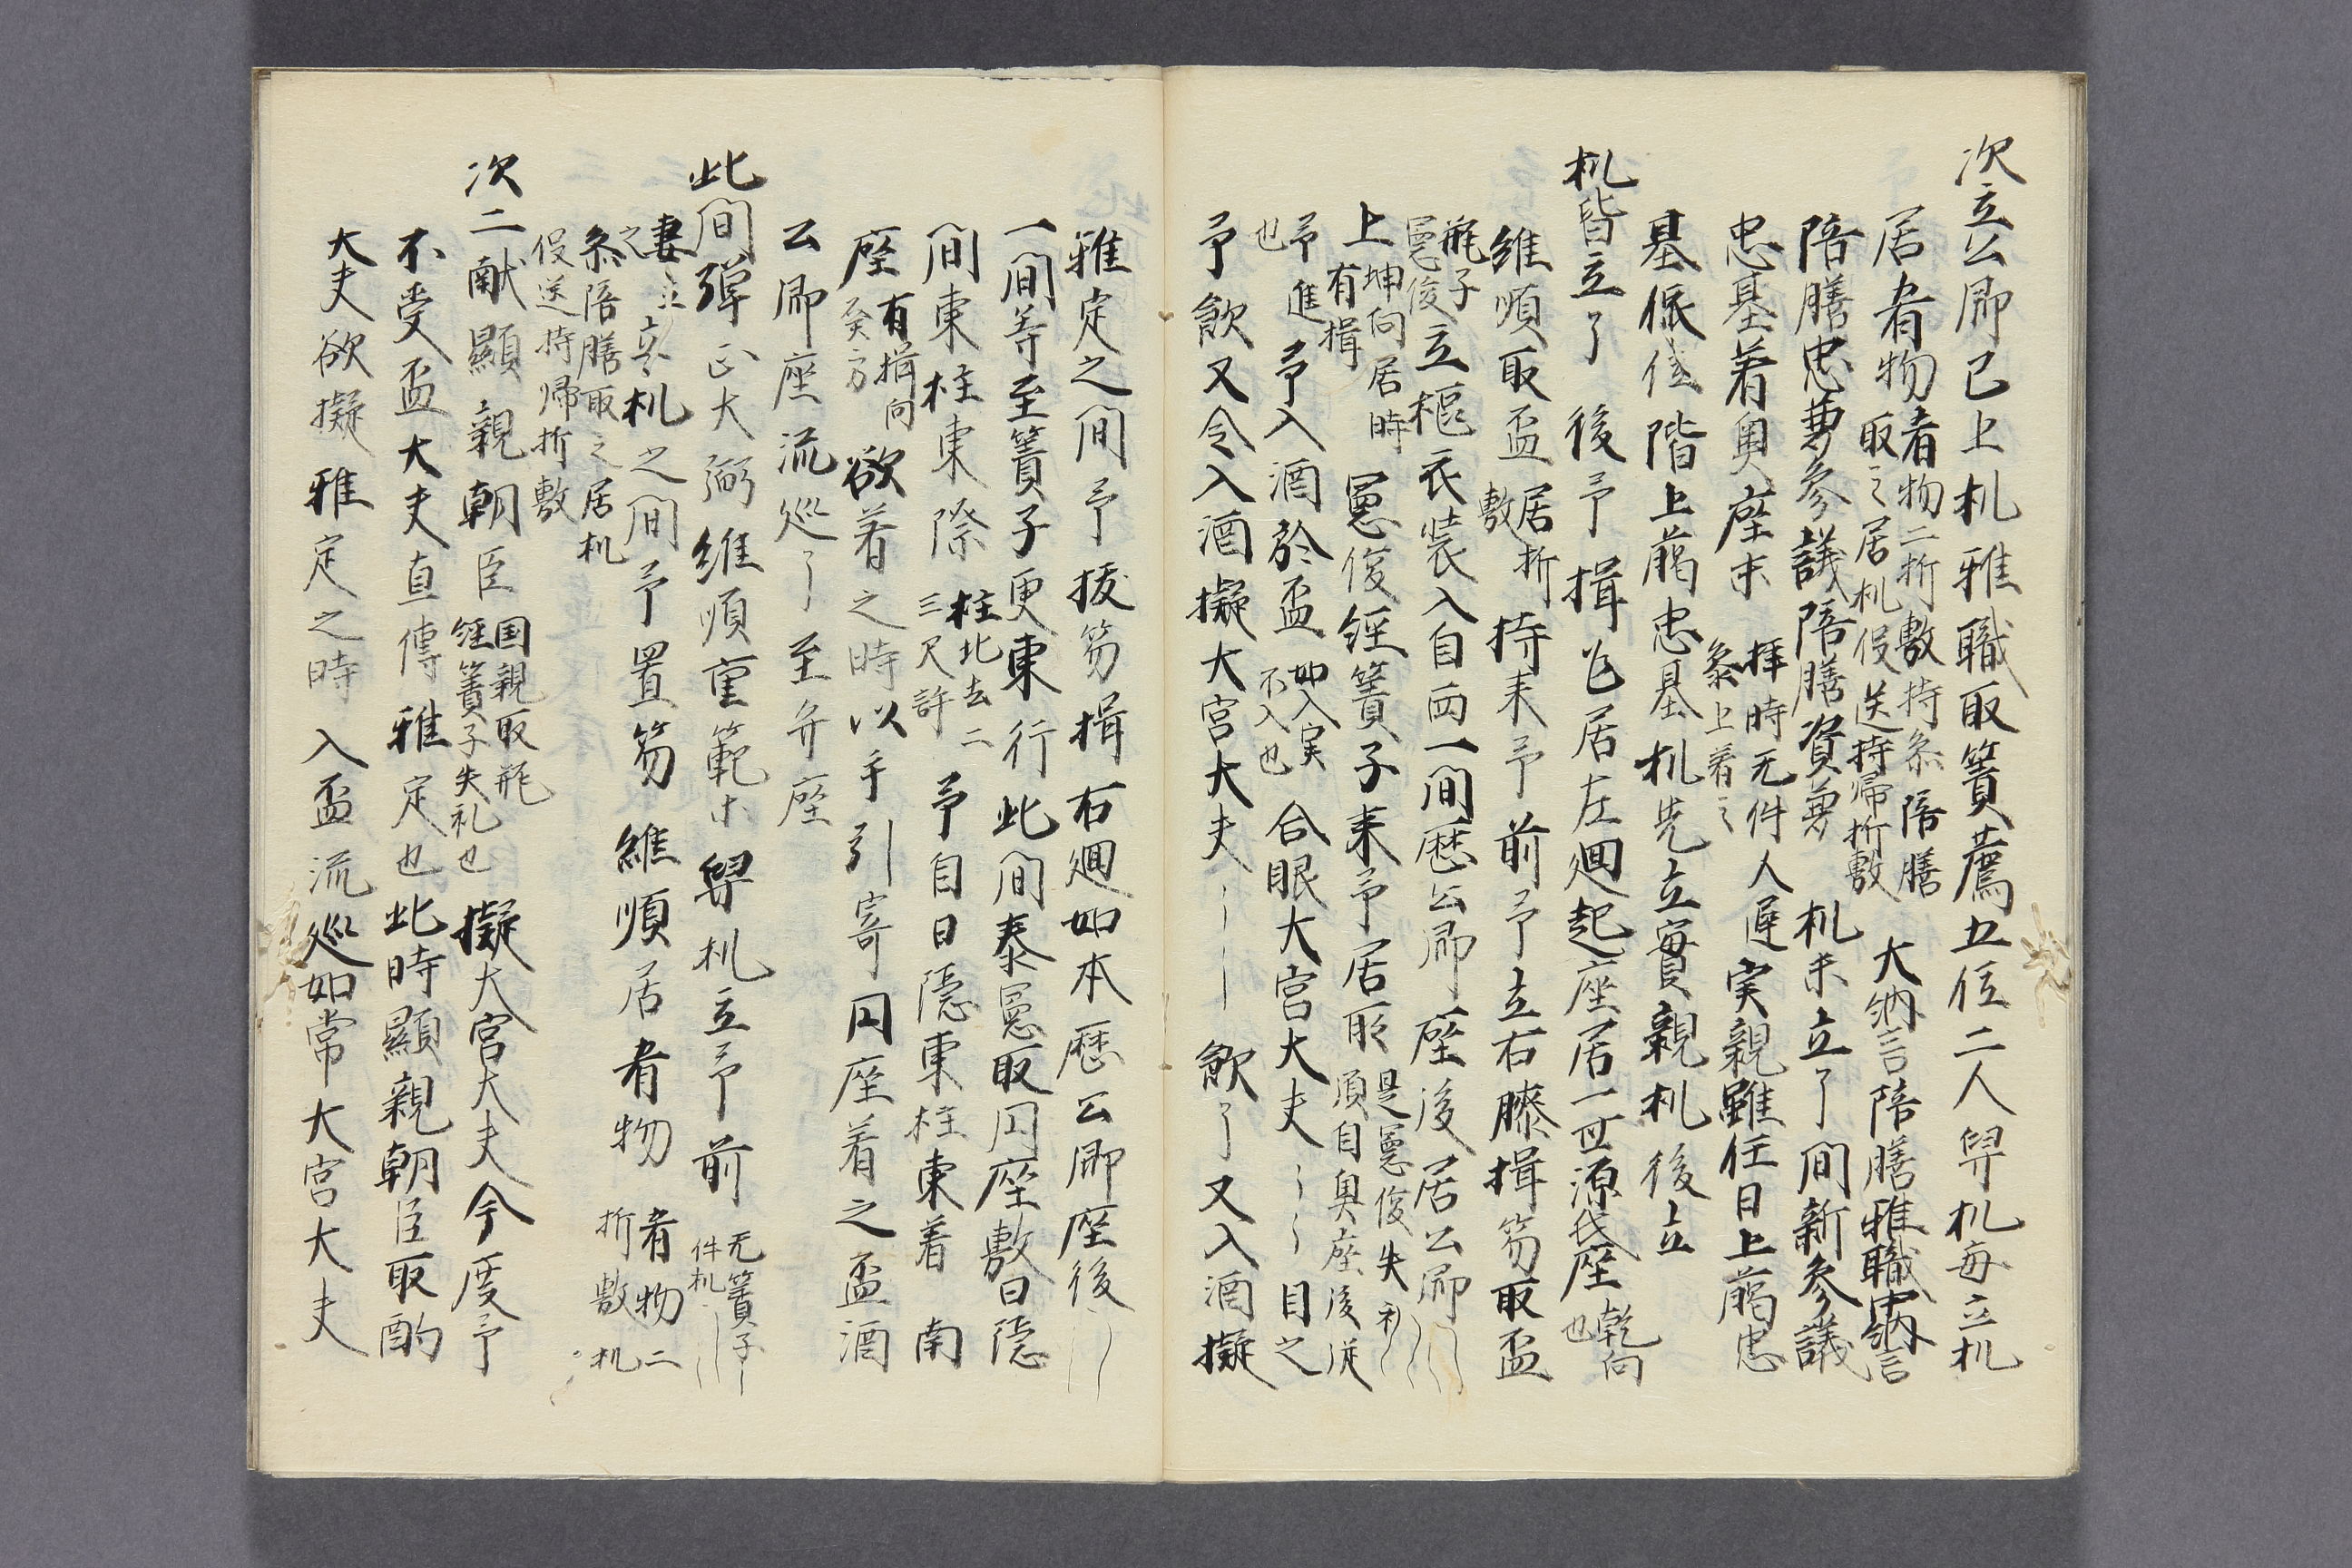 次立公卿已上机雅職取簀薦五位二人舁机毎立机
居肴物 肴物二折敷持参陪膳
取之居机役送持帰折敷 大納言陪膳雅職中納言
陪膳忠兼参議陪膳資兼 机未立了間新参議
忠基着奥座末 拝時无件人遅
参上着之 実親雖任日上臈忠
基依位階上臈忠基机先立実親机後立
机皆立了 後予揖乍居左廻起座居 源氏座 乾向
也
維順取盃 居折
敷 持来予前予立右膝揖笏取盃
瓶子
憲俊 立 衣装入自面一間歴公卿座後居公卿
上 坤向居時
有揖 憲俊経簀子来予居所 是憲俊失礼
須自奥座後進
予進
也 予入酒於盃 如入実
不入也 合眼大宮大夫 目之
予飲又令入酒擬大宮大夫 飲了又入酒擬
雅定之間予抜笏揖右廻如本歴公卿座後
一間等至簀子更東行此間泰憲取円座敷日隠
間東柱東際 柱北去二
三尺許 予自日隠東柱東着南
座 有揖向
癸方 欲着之時以手引寄円座着之盃酒
公卿座流巡了至弁座
此間弾正大弼維順重範等舁机立予前 无簀子
件机
妻 立机之間予置笏 維順居肴物 肴物二
折敷机
参陪膳取之居机
役送持帰折敷
次二献顕親朝臣 国親取瓶
経簀子失礼也 擬大宮大夫今度予
不受盃大夫直傳雅定也此時顕親朝臣取酌
大夫欲擬雅定之時入盃流巡如常大宮大夫